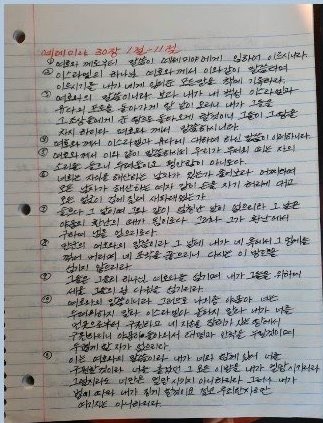 예레미야 30장 1절-11절
① 여호와께로부터 말씀이 예레미야에게 임하여 이르시니라
② 이스라엘의 하나님 여호와께서 이와같이 말씀하여
이르시기를 내가 네게 일러준 모든말을 책에 기록하라
③ 여호와의 말씀이니라 보라 내가 내 백성 이스라엘과
유다의 포로를 돌아가게 할 날이 오리니 내가 그들을
그 조상들에게 준 땅으로 돌아오게 할것이니 그들이 그 땅을
차지 하리라 여호와께서 말씀하시니라
④ 여호와께서 이스라엘과 유다에 대하여 하신 말씀이 이러하니라
⑤ 여호와께서 이와 같이 말씀하시되 우리가 무서워 떠는 자의
소리를 들으니 두려움이요 평안함이 아니로다
⑥ 너희는 자식을 해산하는 남자가 있는가 물어보라 어찌하여
모든 남자가 해산하는 여자 같이 손을 자기 허리에 대고
모든 얼굴이 겁에 질려 새파래졌는가
⑦ 슬프다 그 날이여 그와 같이 엄청난 날이 없으리라 그 날은
야곱의 환난의 때가 됨이로다 그러나 그가 환난에서
구하여 냄을 얻으리로다
⑧ 만군의 여호와의 말씀이라 그 날에 내가 네 목에서 그 멍에를
꺾어 버리며 네 포박을 끊으리니 다시는 이방인을
섬기지 않으리라
⑨ 그들은 그들의 하나님 여호와를 섬기며 내가 그들을 위하여
세울 그들의 왕 다윗을 섬기리라
⑩ 여호와의 말씀이니라 그러므로 나의 종 야곱아 너는
두려워하지 말라 이스라엘아 놀라지 말라 내가 너를
먼곳으로부터 구원하고 네 자손을 잡혀가 있는 땅에서
구원하리니 야곱이 돌아와서 태평과 안락을 누릴것이며
두렵게 할 자가 없으리라
⑪ 이는 여호와의 말씀이라 내가 너와 함께 있어 너를
구원할것이라 너를 흩었던 그 모든 이방을 내가 멸망시키리라
그럴지라도 너만은 멸망시키지 아니하리라 그러나 내가
법에 따라 너를 징계할것이요 결코 무죄한자로만
여기지는 아니하리라